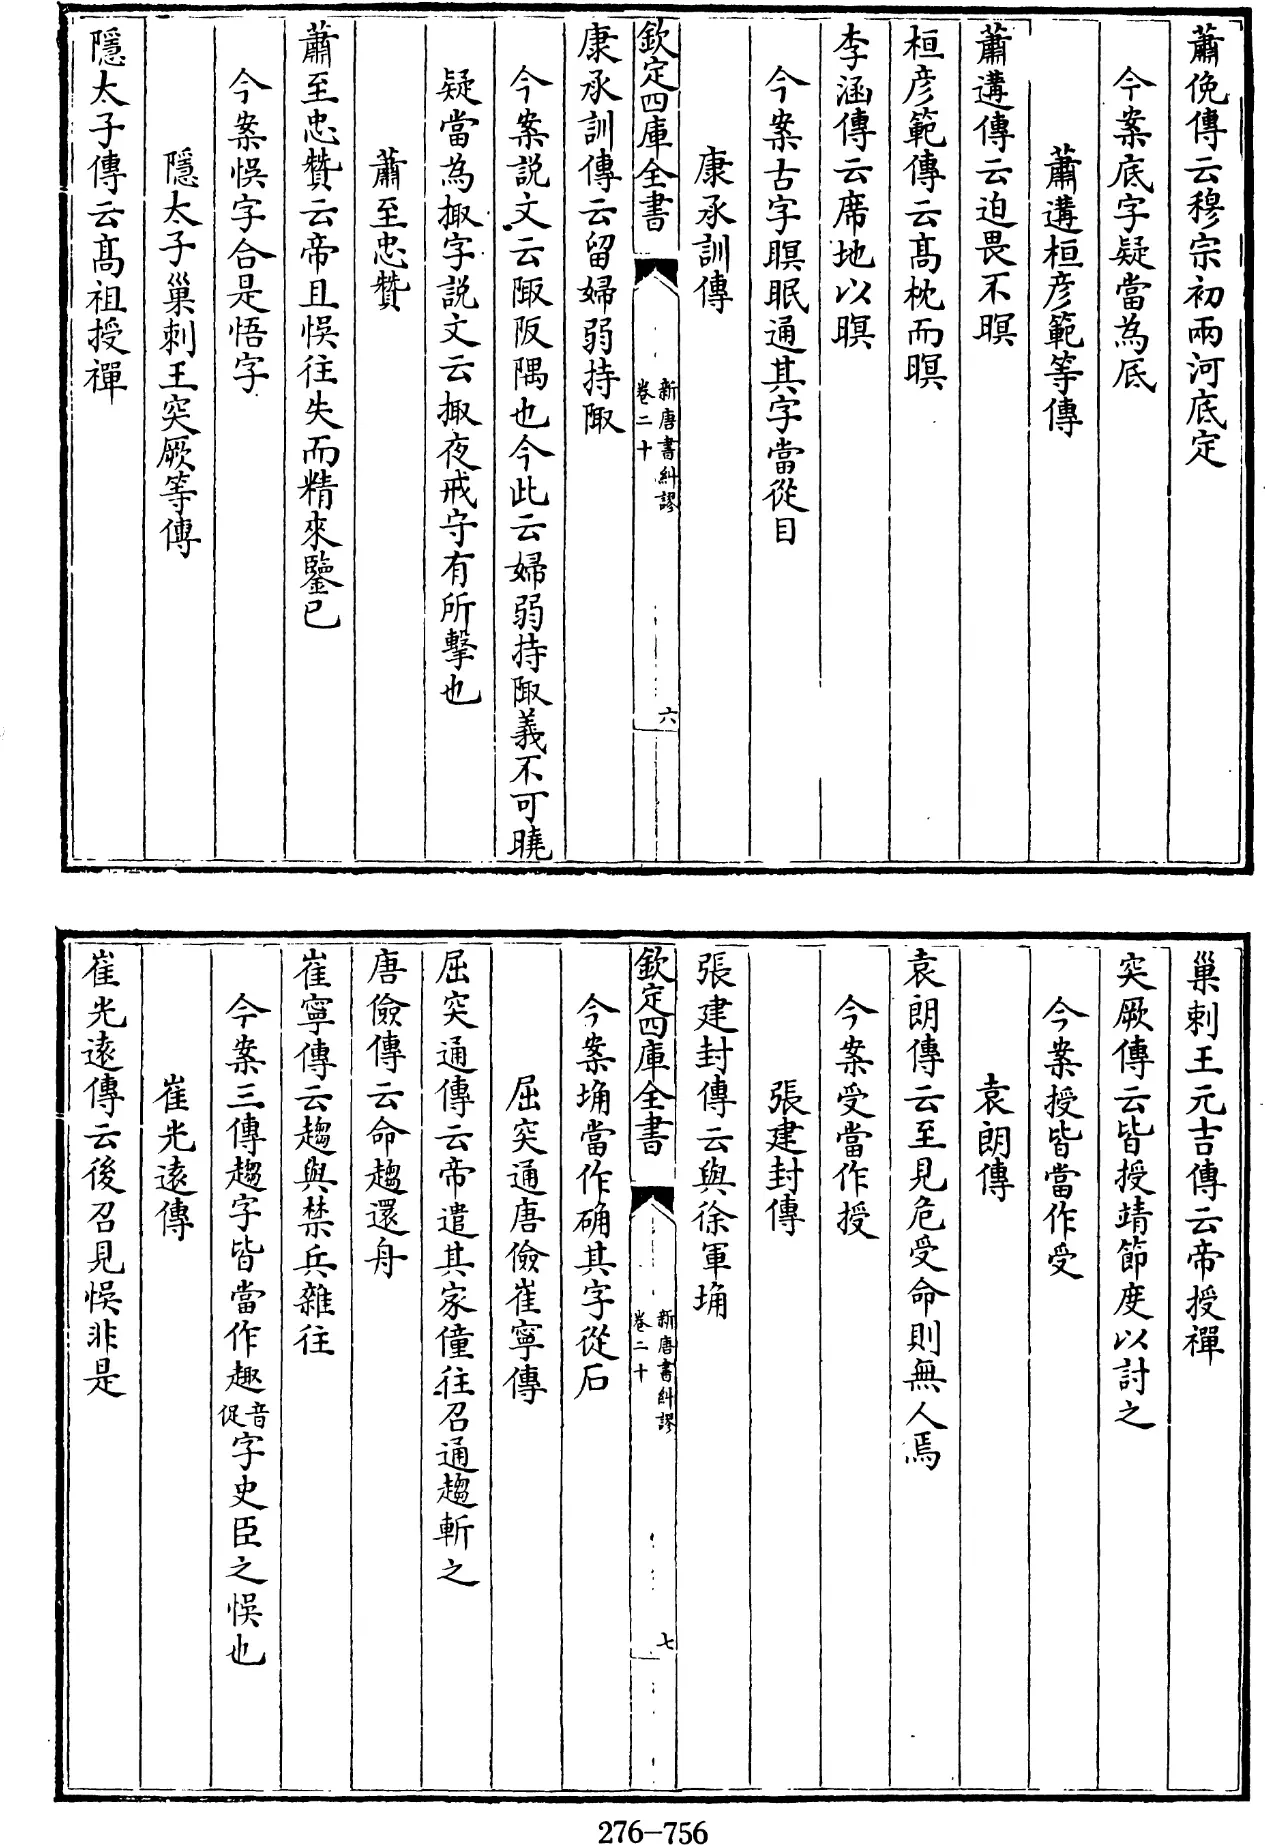 蕭俛傳云穆宗初兩河底定
今案底字疑當為厎
蕭遘桓彦範等傳
蕭遘傳云迫畏不瞑
桓彦範傳云髙枕而瞑
李涵傳云席地以瞑
今案古字瞑眠通其字當從目
康承訓傳
欽定四庫全書
新唐書糾謬
卷二十
六
康承訓傳云留婦弱持陬
今案説文云陬阪隅也今此云婦弱持陬義不可曉
疑當為掫字説文云掫夜戒守有所擊也
蕭至忠贊
蕭至忠贊云帝且悮往失而精來鑒已
今案悮字合是悟字
隱太子巢刺王突厥等傳
隱太子傳云髙祖授禪
巢刺王元吉傳云帝授禪
突厥傳云皆授靖節度以討之
今案授皆當作受
袁朗傳
袁朗傳云至見危受命則無人焉
今案受當作授
張建封傳
張建封傳云與徐軍埆
欽定四庫全書
新唐書糾謬
卷二十
七
今案埆當作确其字從石
屈突通唐儉崔寧傳
屈突通傳云帝遣其家僮往召通趨斬之
唐儉傳云命趨還舟
崔寧傳云趨與禁兵雜往
今案三傳趨字皆當作趣音促字史臣之悮也
崔光逺傳
崔光逺傳云後召見悮非是
276–756